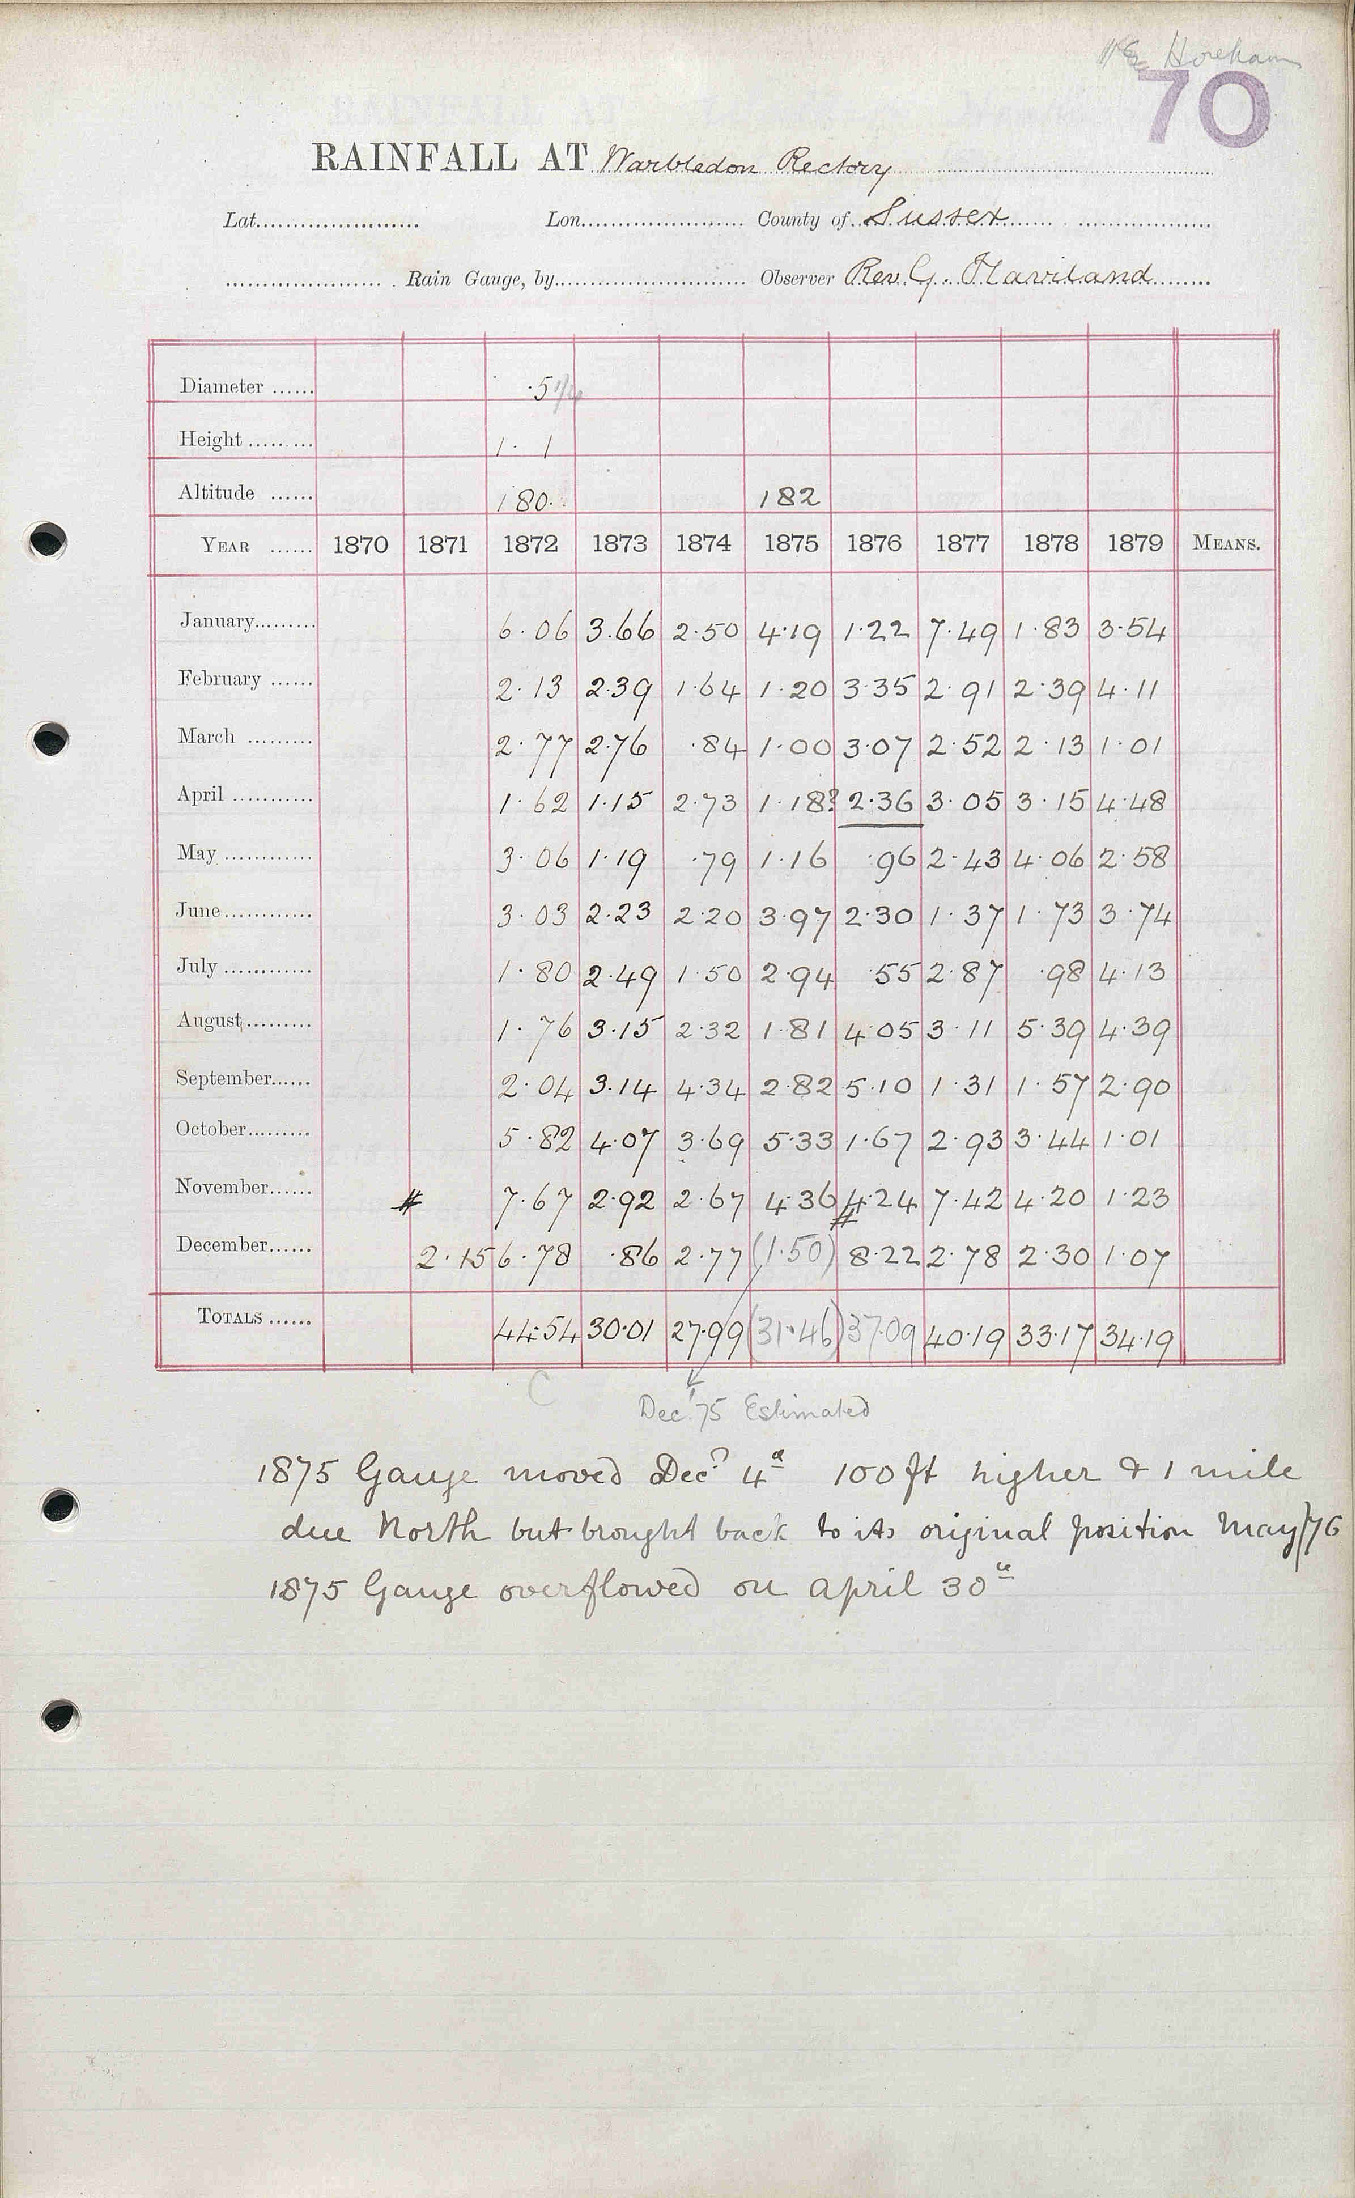 Horeham
70
RAINFALL AT Warbledon Rectory
Lat. Lon. County of Sussex
Rain Gauge, by Observer Rev. G. Haviland
Diameter ...... ·5
Height ......... 1· 1
Altitude ...... 180· 182
YEAR ...... 1870 1871 1872 1873 1874 1875 1876 1877 1878 1879 MEANS.
January......... 6·06 3.66 2·50 4·19 1·22 7·49 1·83 3·54
February ...... 2·13 2.39 1·64 1·20 3·35 2·91 2·39 4·11
March ......... 2·77 2·76 ·84 1·00 3·07 2·52 2·13 1·01
April ........... 1·62 1·15 2·73 1·18? 2·36 3·05 3·15 4·48
May ............ 3·06 1·19 ·79 1·16 ·96 2·43 4·06 2·58
June............ 3·03 2·23 2·20 3·97 2·30 1·37 1·73 3·74
July ............ 1·80 2·49 1·50 2·94 ·55 2·87 ·98 4·13
August.......... 1·76 3·15 2·32 1·81 4·05 3·11 5·39 4·39
September...... 2·04 3·14 4·34 2·82 5·10 1·31 1·57 2·90
October......... 5·82 4·07 3·69 5·33 1·67 2·93 3·44 1·01
November...... # 7·67 2·92 2·67 4·36 # 4·24 7·42 4·20 1·23
December...... 2·15 6·78 ·86 2·77 (1·50) 8·22 2·78 2·30 1·07
TOTALS ...... 44·54 30·01 27·99 (31·46) 37·09 40·19 33·17 34·19
C
Dec' 75 Estimated
1875 Gauge moved Dec? 4th 100 ft higher & 1 mile
due North but brought back to its original position May/76
1875 Gauge overflowed on April 30th